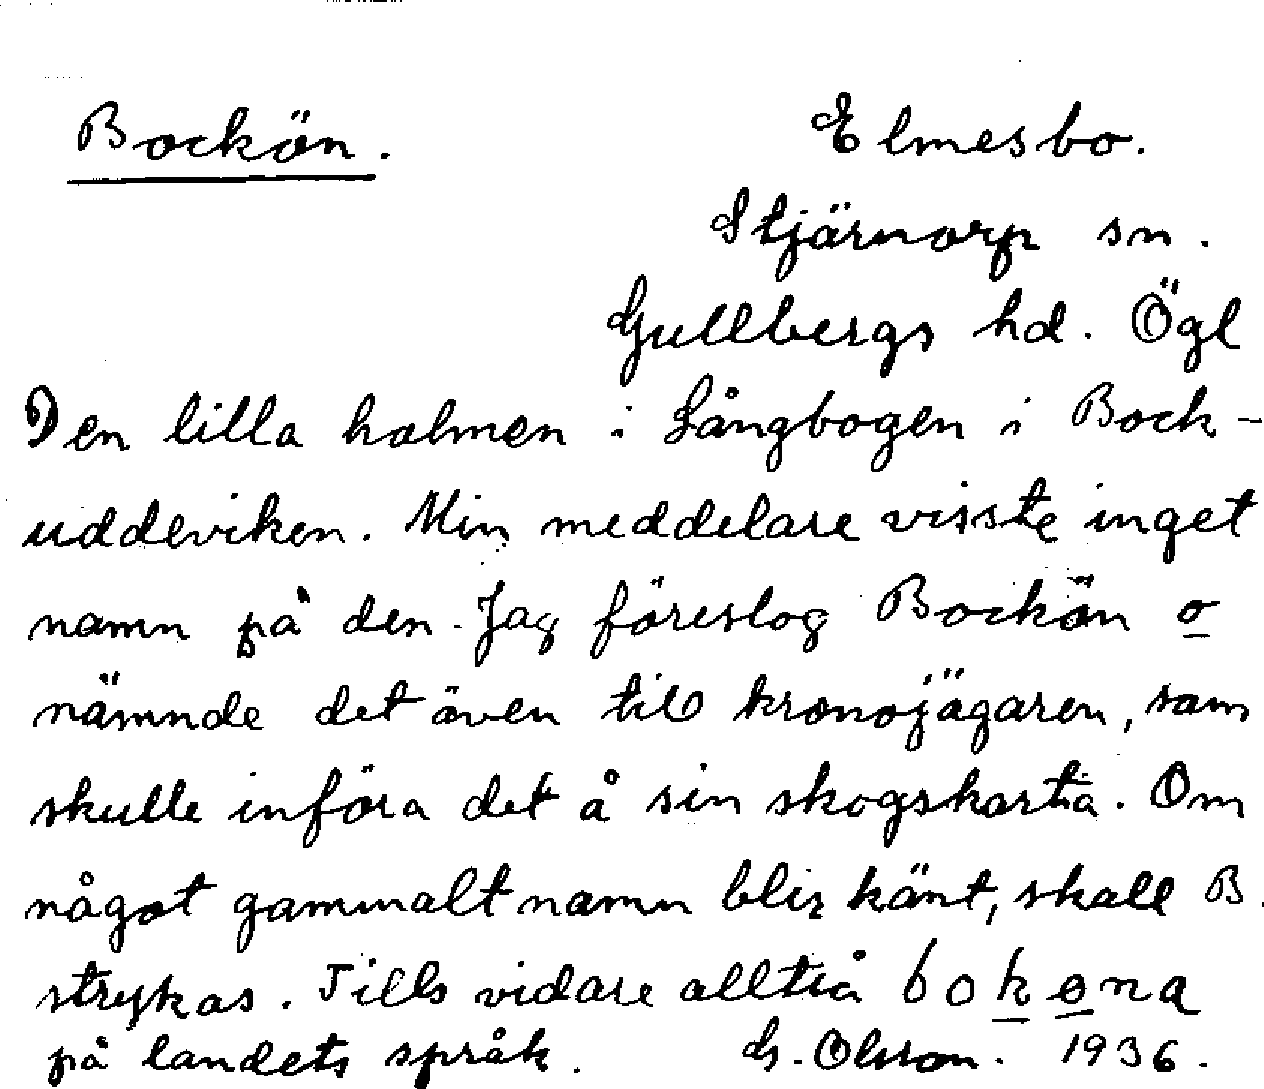 Bockön.
Elmesbo.
Stjärnorp sn.
Gullbergs hd. Ögl
Den lilla holmen i Långbogen i Bock-
uddeviken. Min meddelare visste inget
namn på den. Jag föreslog Bockön o
nämnde det även till kronojägaren, som
skulle införa det å sin skogskarta. Om
något gammalt namn blir känt, skall B.
strykas. Tills vidare alltså
på landets språk. G. Olsson. 1936.